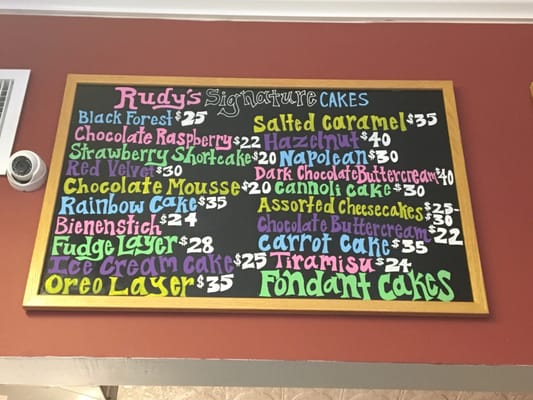 Rudy's Signature CAKES
Black Forest $25
Chocolate Raspberry $22
Strawberry Shortcake $20
Red Velvet $30
Chocolate Mousse $20
Rainbow Cake $35
Bienenstich $24
Fudge Layer $28
Ice Cream Cake $25
Oreo Layer $35
Salted Caramel $35
Hazelnut $40
Napolean $30
Dark Chocolate Buttercream $40
Cannoli Cake $30
Assorted Cheesecakes $25-$30
Chocolate Buttercream $22
Carrot Cake $35
Tiramisu $24
Fondant Cakes